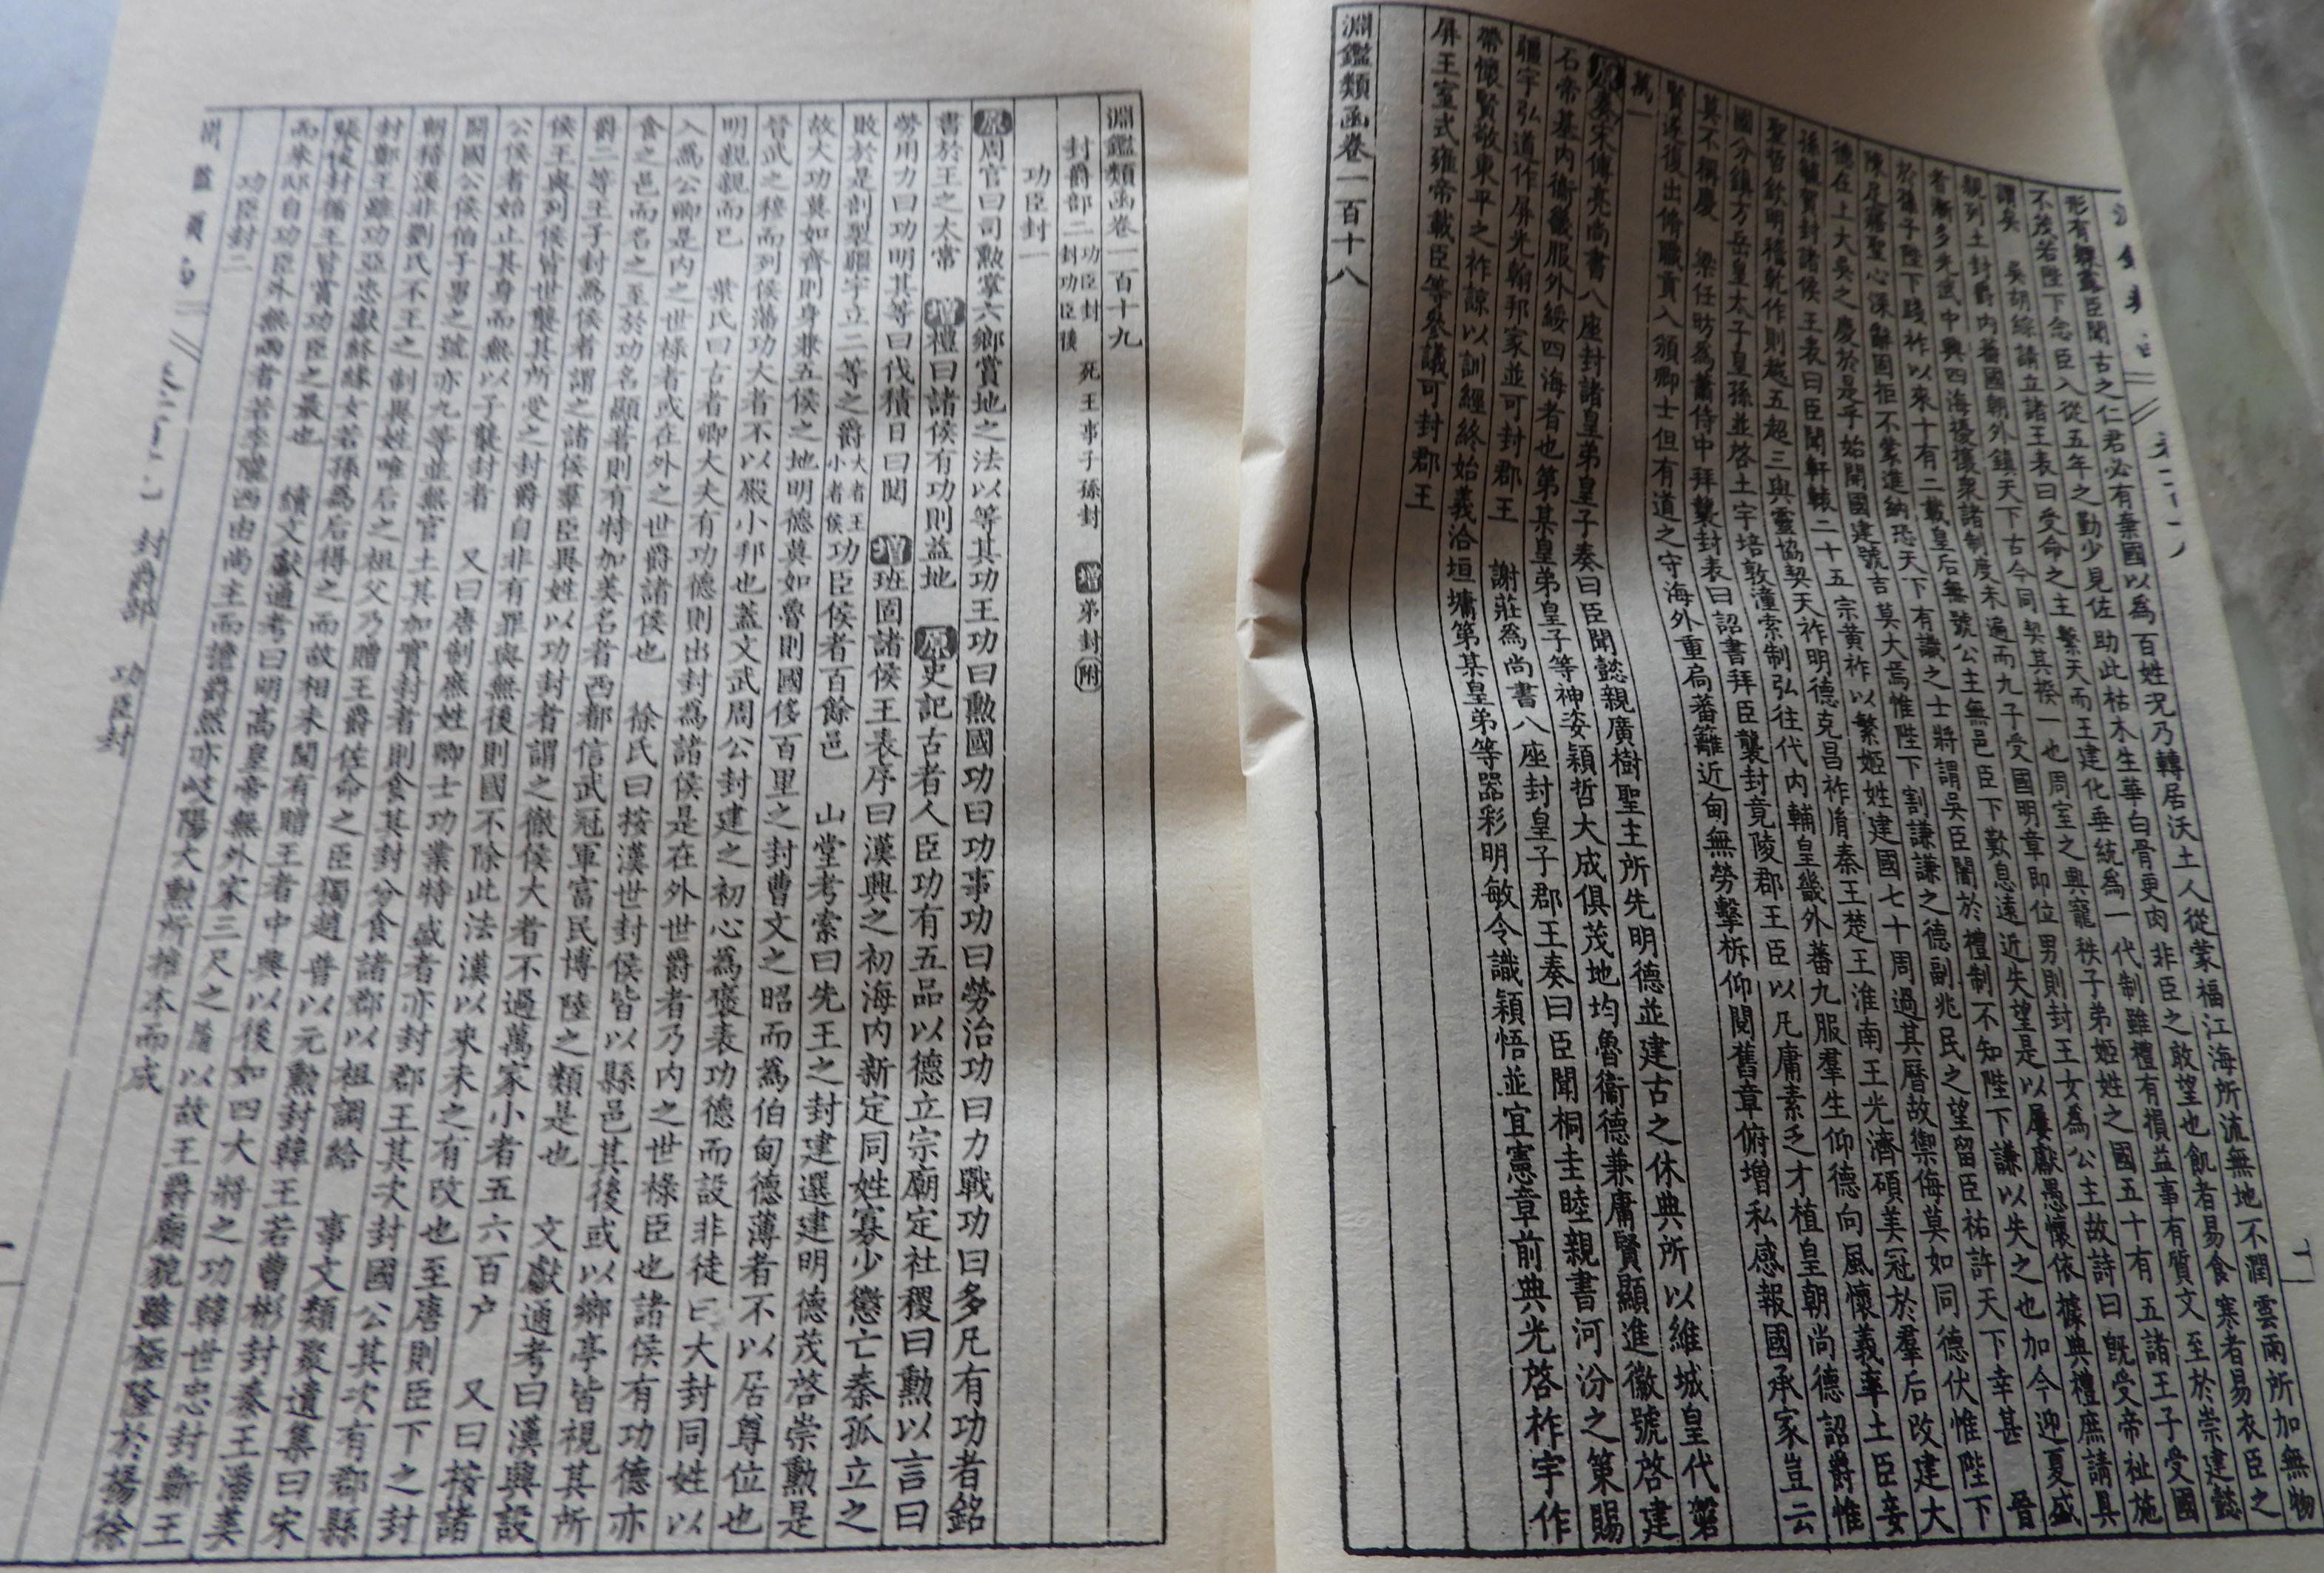 形有緣蓋臣聞古之仁君必有棄國以為百姓況乃轉居沃土人從蒙福江海所流無地不潤雲雨所加無物
不茂若陛下念臣入從五年之勤少見佐助此枯木生華白骨更肉非臣之敢望也飢者易食寒者易衣臣之
謂矣 吳胡綜請立諸王表曰受命之主繫天而王建化垂統為一代制雖禮有損益事有質文至於崇建懿
親列土封爵內蕃國朝外鎮天下古今同契其揆一也周室之興寵秩子弟姬姓之國五十有五諸王子受國
者漸多光武中興四海擾攘眾諸制度未遍而九子受國明章即位男則封王女為公主故詩曰旣受帝祉施
於孫子陛下踐祚以來十有二載皇后無號公主無邑臣下歎息遠近失望是以屢獻愚懷依據典禮庶請具
陳足寤聖心深辭固拒不蒙進納恐天下有識之士將謂吳臣闇於禮制不知陛下謙以失之也加今迎夏盛
德在上大吳之慶於是乎始開國建號吉莫大焉惟陛下割謙謙之德副兆民之望留臣祐許天下幸甚 晉
孫毓賀封諸侯王表曰臣聞軒轅二十五宗黃祚以繁姬姓建國七十周過其曆故禦侮莫如同德伏惟陛下
聖哲欽明稽乾作則越五超三與靈協契天祚明德克昌祚胤秦王楚王淮南王光濟碩美冠於羣后改建大
國分鎮方岳皇太子皇孫並啓土宇培敦潼索制弘往代內輔皇畿外蕃九服羣生仰德向風懷義率土臣妾
莫不稱慶 梁任昉為蕭侍中拜襲封表曰詔書拜臣襲封竟陵郡王臣以凡庸素乏才植皇朝尚德詔爵惟
賢遂復出脩職貢入頒卿士但有道之守海外重扃蕃籬近甸無勞擊柝仰閱舊章俯增私感報國承家豈云
萬一
原奏宋傅亮尚書八座封諸皇弟皇子奏曰臣聞懿親廣樹聖主所先明德並建古之休典所以維城皇代磐
石帝基內衞畿服外綏四海者也第某皇弟皇子等神姿穎哲大成俱茂地均魯衞德兼庸賢顯進徽號啓建
疆宇弘道作屏光翰邦家並可封郡王 謝莊為尚書八座封皇子郡王奏曰臣聞桐圭睦親書河汾之策賜
帶懷賢敬東平之祚諒以訓經終始義洽垣墉第某皇弟等器彩明敏令識穎悟並宜憲章前典光啓祚宇作
屏王室式雍帝載臣等參議可封郡王
淵鑑類函卷一百十八
淵鑑類函卷一百十九
封爵部二 功臣封 封功臣後 死王事子孫封 增 弟封 附
功臣封一
原周官曰司勲掌六鄉賞地之法以等其功王功曰勲國功曰功事功曰勞治功曰力戰功曰多凡有功者銘
書於王之太常 增禮曰諸侯有功則益地 原史記古者人臣功有五品以德立宗廟定社稷曰勲以言曰
勞用力曰功明其等曰伐積日曰閱 增班固諸侯王表序曰漢興之初海內新定同姓寡少懲亡秦孤立之
敗於是剖裂疆宇立二等之爵大者王小者侯功臣侯者百餘邑 山堂考索曰先王之封建選建明德茂啓崇勲是
故大功莫如齊則身兼五侯之地明德莫如魯則國侈百里之封曹文之昭而為伯甸德薄者不以居尊位也
晉武之穆而列侯藩功大者不以殿小邦也蓋文武周公封建之初心為褒表功德而設非徒曰大封同姓以
明親親而已 葉氏曰古者卿大夫有功德則出封為諸侯是在外世爵者乃內之世祿臣也諸侯有功德亦
入為公卿是內之世祿者或在外之世爵諸侯也 徐氏曰按漢世封侯皆以縣邑其後或以鄉亭皆視其所
食之邑而名之至於功名顯著則有特加美名者西都信武冠軍富民博陸之類是也 文獻通考曰漢興設
爵二等王子封為侯者謂之諸侯羣臣異姓以功封者謂之徹侯大者不過萬家小者五六百户 又曰按諸
侯王與列侯皆世襲其所受之封爵自非有罪與無後則國不除此法漢以來未之有改也至唐則臣下之封
公侯者始止其身而無以子襲封者 又曰唐制庶姓卿士功業特盛者亦封郡王其次封國公其次有郡縣
開國公侯伯子男之號亦九等並無官土其加實封者則食其封分食諸郡以租調給 事文類聚遺集曰宋
朝稽漢非劉氏不王之制異姓唯后之祖父乃贈王爵佐命之臣獨趙普以元勲封韓王若曹彬封秦王潘美
封鄭王雖功亞忠獻終緣女若孫為后得之而故相未聞有贈王者中興以後如四大將之功韓世忠封蘄王
張俊封循王皆賞功臣之最也 續文獻通考曰明高皇帝無外家三尺之以故王爵廟貌雖極隆於揚徐
而朱邸自功臣外無兩者若李隴西由尚主而濟爵然亦岐陽大勲所推本而成
功臣封二
封爵部 功臣封